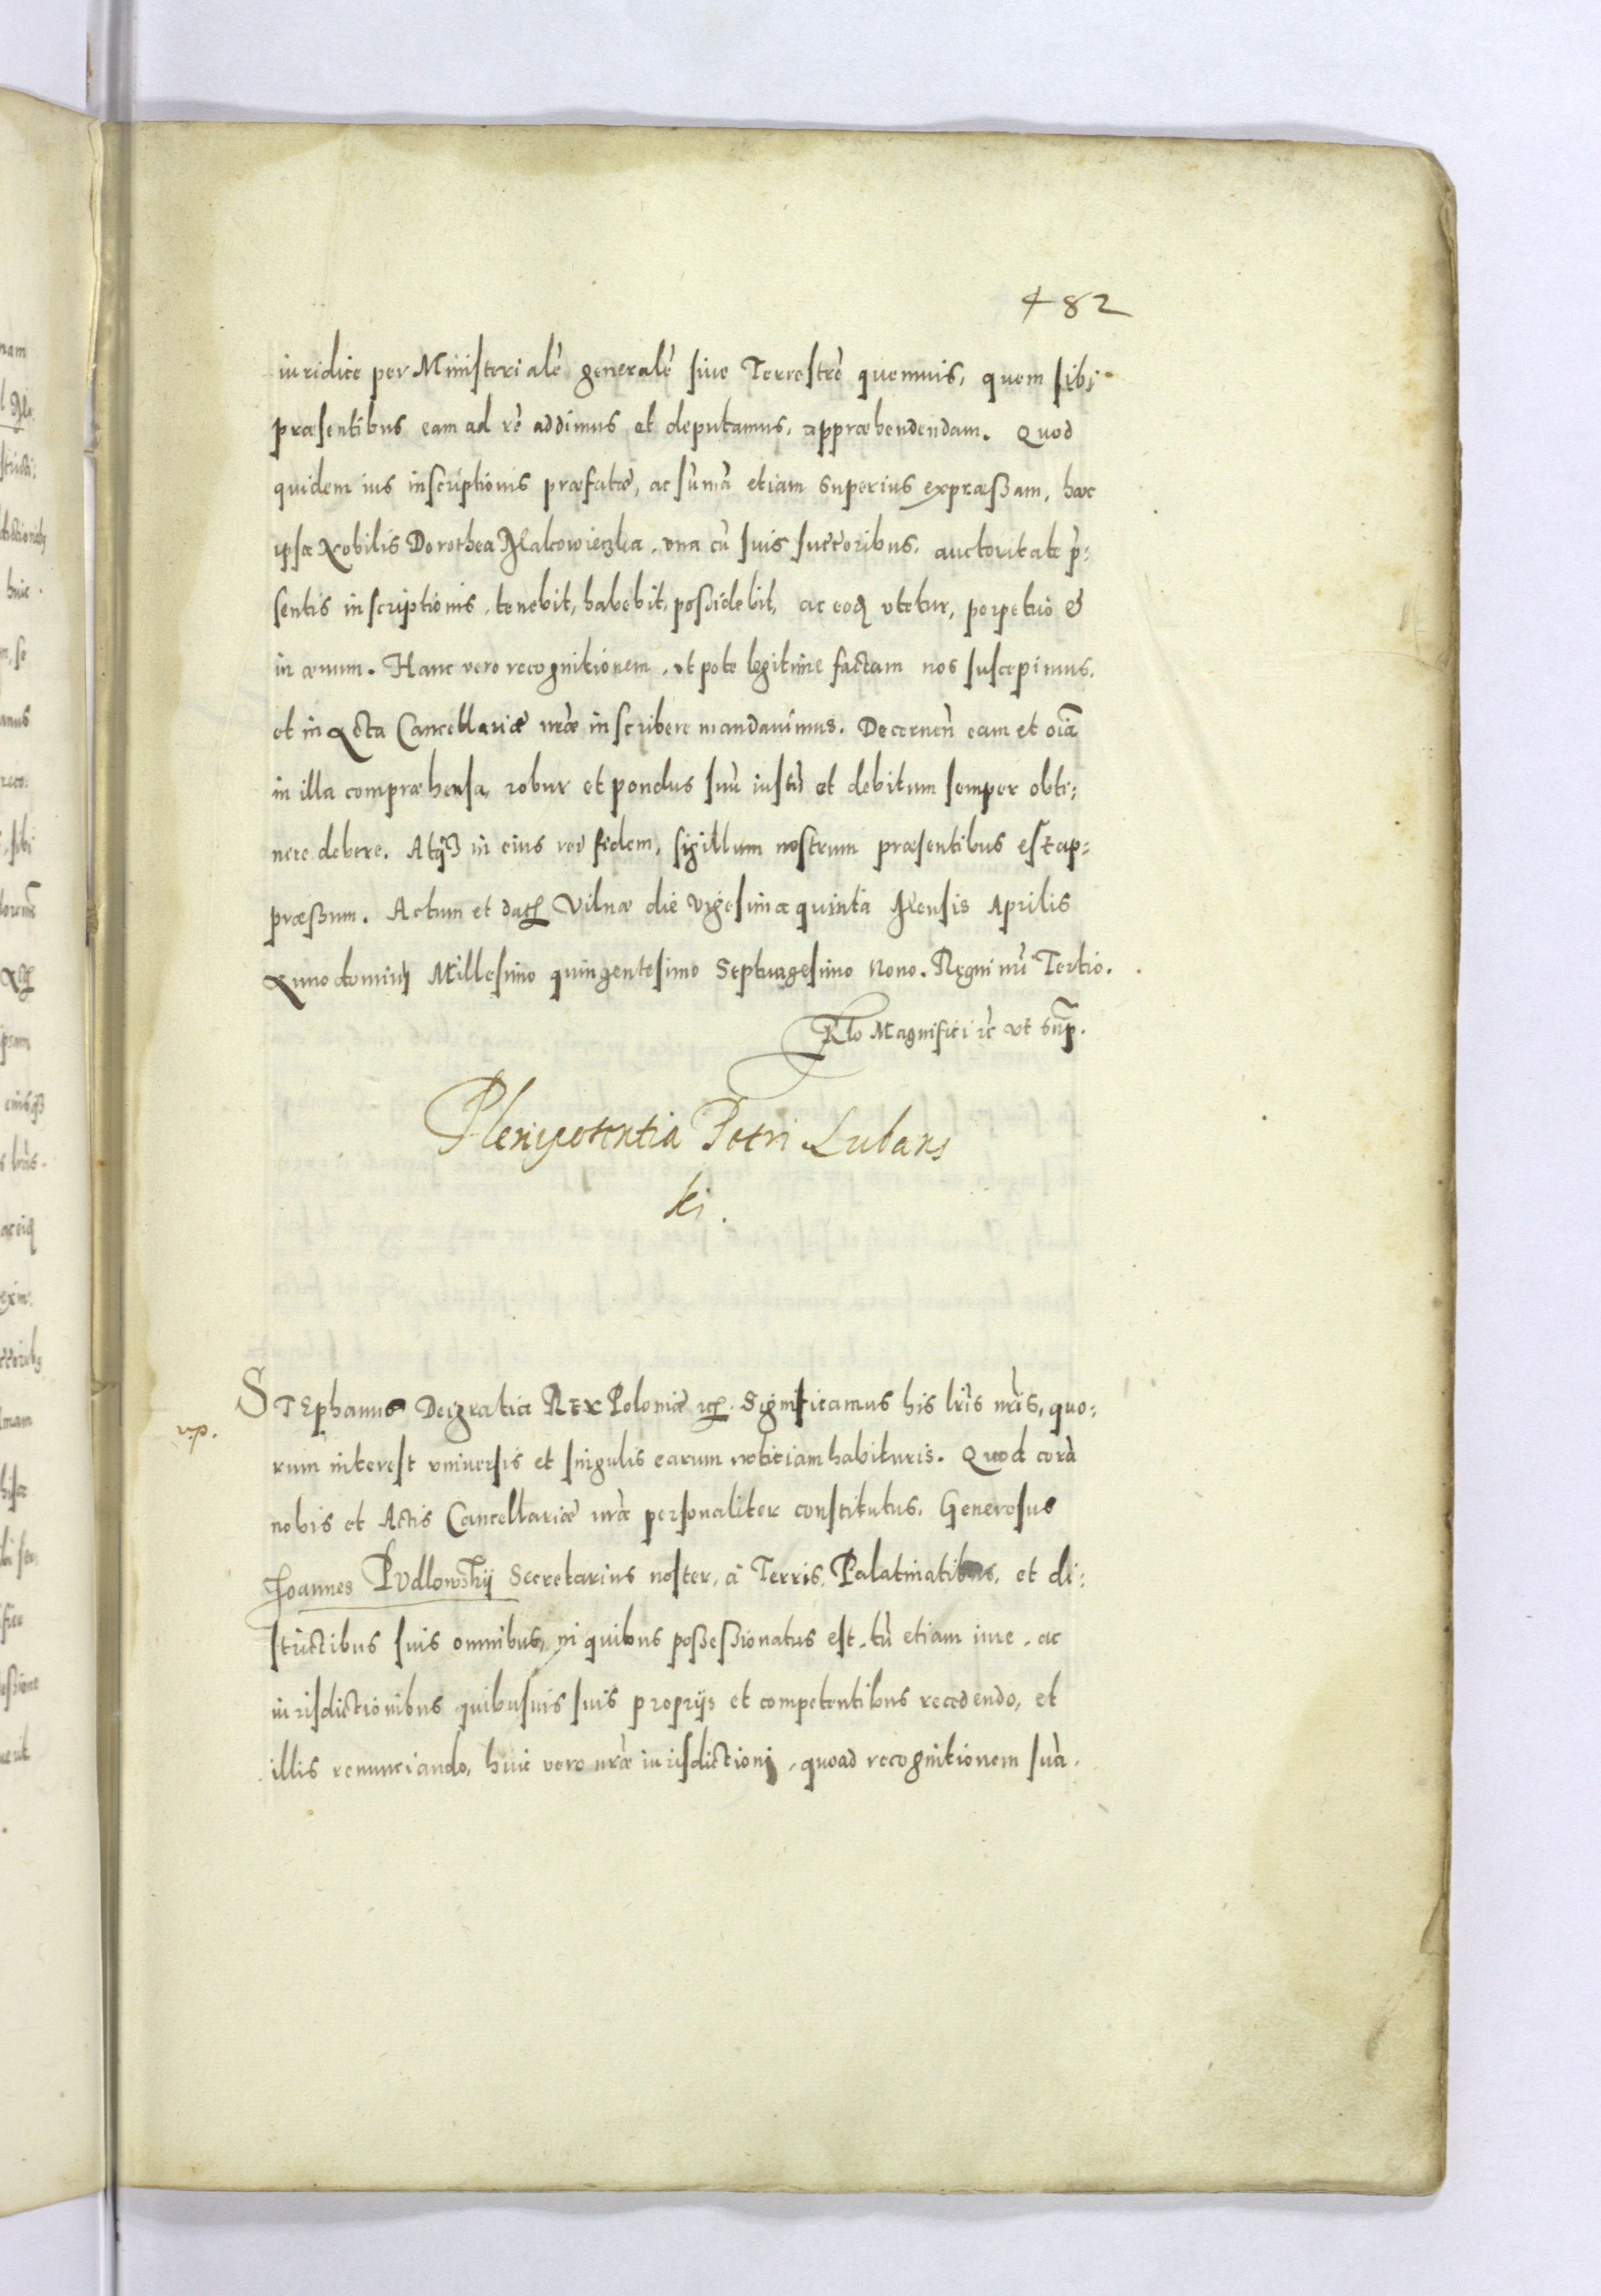 482
iuridice per Ministerialē generalē siue Terrestrē quemuis, quem sibi
præsentibus eam ad rē addimus et deputamus, appræhendendam. Quod
quidem ius inscriptionis præfatæ, ac sum̄ā etiam superius expræßam, hæc
ipsa Nobilis Dorothea Malcowieczka, vna cū suis succ̄oribus, auctoritate p̄:
sentis inscriptionis, tenebit, habebit, poßidebit, ac eoq̧ vtetur, perpetuo &
in æuum. Hanc vero recognitionem, vt pote legitime factam nos suscepimus,
et in Acta Cancellariæ nr̄æ inscribere mandauimus. Decernen̄ eam et oīa
in illa compræhensa, robur et pondus suū iustū et debitum semper obti:
nere debere. Atqȝ in eius rei fidem, sigillum nostrum præsentibus est ap:
præßum. Actum et dat̄ Vilnæ die Vigesima quinta Mensis Aprilis
Anno domini Millesimo quingentesimo Septuagesimo Nono. Regni nr̄i Tertio.
Rlo Magnifici ꝛc̄ vt sup̄.
Plenipotentia Petri Lubans
ki.
STEphanus Dei gratia REX Poloniæ ꝛc̄. Significamus his lr̄is nr̄is, quo:
v.p.
rum interest vniuersis et singulis earum noticiam habituris. Quod corā
nobis et Actis Cancellariæ nr̄æ personaliter constitutus, Generosus
Joannes Pudlowskij Secretarius noster, à Terris, Palatinatibus, et di:
strictibus suis omnibus, in quibus poßeßionatus est, tū etiam iure, ac
iurisdictionibus quibusuis suis proprijs et competentibus recedendo, et
illis renunciando, huic vero nr̄æ iurisdictioni, quoad recognitionem suā